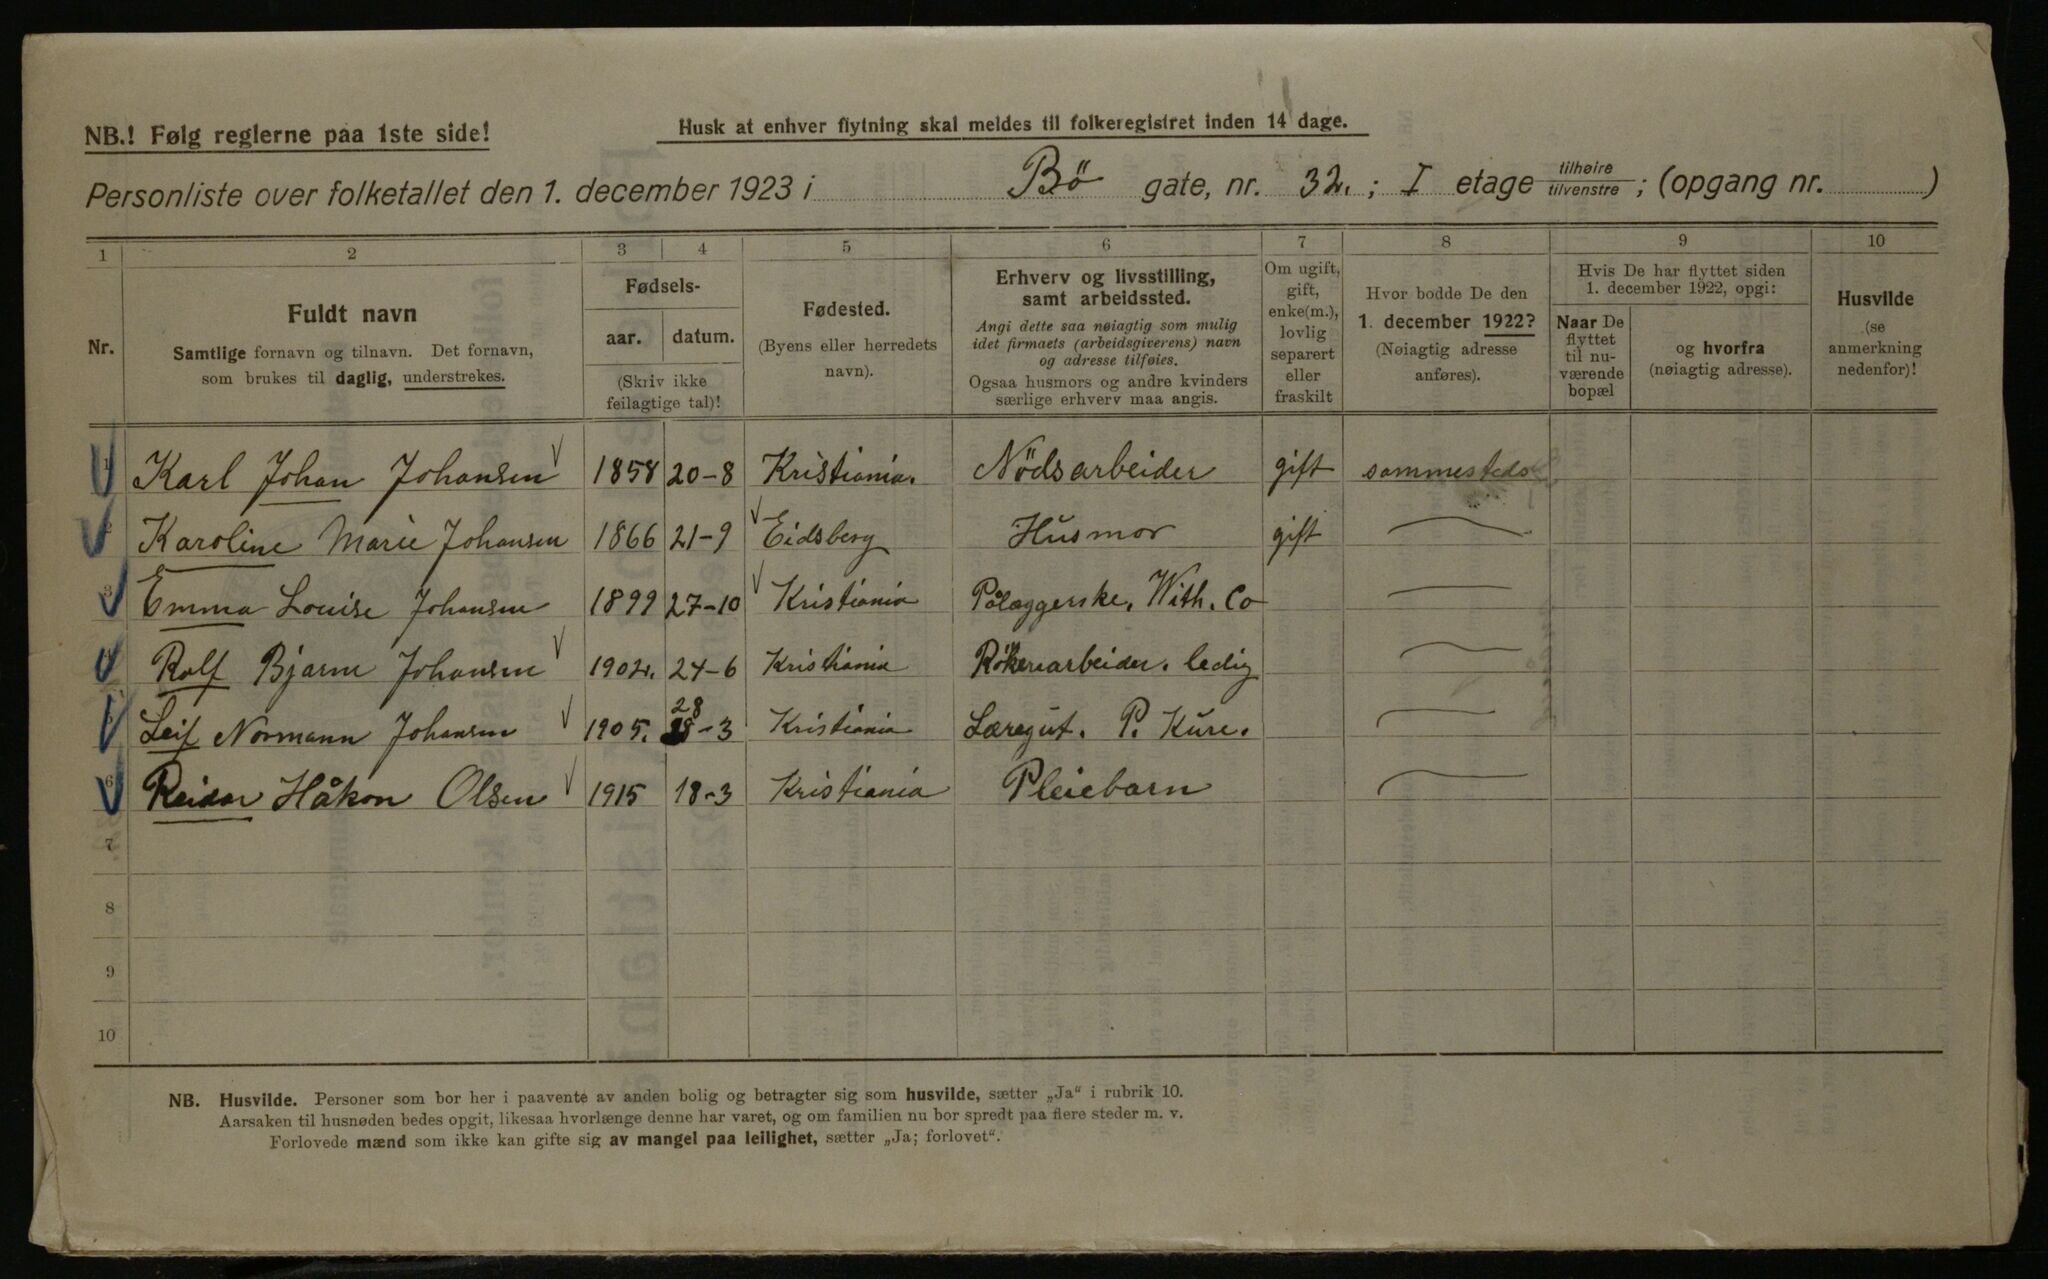 NB.! Følg reglerne paa 1ste side!
Husk at enhver flytning skal meldes til folkeregistret inden 14 dage.
Personliste over folketallet den 1. december 1923 i Bø gate, nr. 32. ; I etage tilhøire/tilvenstre ; (opgang nr. )
1 2 3 4 5 6 7 8 9 10
Nr.
Fuldt navn
Samtlige fornavn og tilnavn. Det fornavn,
som brukes til daglig, understrekes.
Fødsels-
aar. datum.
(Skriv ikke
feilagtige tal)!
Fødested.
(Byens eller herredets
navn).
Erhverv og livsstilling,
samt arbeidssted.
Angi dette saa nøiagtig som mulig
idet firmaets (arbeidsgiverens) navn
og adresse tilføies.
Ogsaa husmors og andre kvinders
særlige erhverv maa angis.
Om ugift,
gift,
enke(m.),
lovlig
separert
eller
fraskilt
Hvor bodde De den
1. december 1922?
(Nøiagtig adresse
anføres).
Hvis De har flyttet siden
1. december 1922, opgi:
Naar De
flyttet
til nu-
værende
bopæl
og hvorfra
(nøiagtig adresse).
Husvilde
(se
anmerkning
nedenfor)!
1 Karl Johan Johansen 1858 20-8 Kristiania. Nödsarbeider gift sammesteds
2 Karoline Marie Johansen 1866 21-9 Eidsberg Husmor gift
3 Emma Louise Johansen 1899 27-10 Kristiania Pålæggerske. With. Co
4 Rolf Bjarne Johansen 1902. 24-6 Kristiania Rökeriarbeider. ledig
5 Leif Normann Johansen 1905. 28-3 Kristiania Læregut. P. Kure.
6 Reidar Håkon Olsen 1915 18-3 Kristiania Pleiebarn
7
8
9
10
NB. Husvilde. Personer som bor her i paavente av anden bolig og betragter sig som husvilde, sætter „Ja“ i rubrik 10.
Aarsaken til husnøden bedes opgit, likesaa hvorlænge denne har varet, og om familien nu bor spredt paa flere steder m. v.
Forlovede mænd som ikke kan gifte sig av mangel paa leilighet, sætter „Ja; forlovet“.